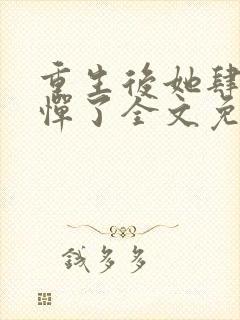 重生後她肆
憚了全文免
錢多多